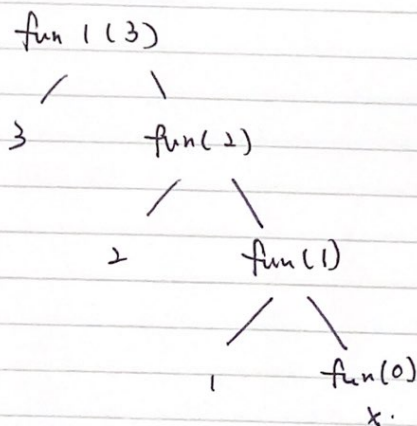 fun 1 (3)
3 fun(2)
2 fun(1)
1 fun(0)
x.